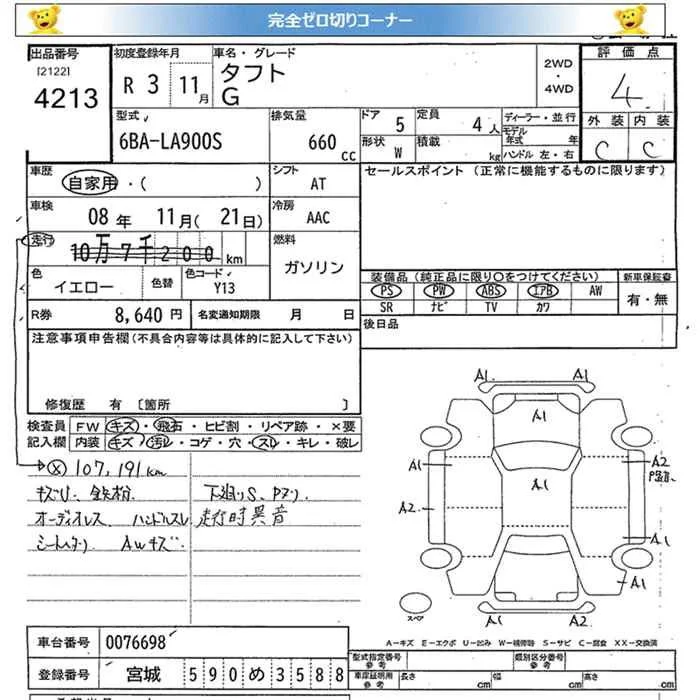 完全ゼロ切りコーナー
出品番号
[2122]
4213
初度登録年月
R 3 11月
車名・グレード
タフト
G
2WD
・
4WD
評価点
4
外装 内装
C C
型式
6BA-LA900S
排気量
660 cc
ドア 5
定員 4人
形状 W
積載 kg
ディーラー・並行
モデル年式 年
ハンドル 左・右
車歴
自家用・( )
シフト
AT
セールスポイント (正常に機能するものに限ります)
車検
08年 11月( 21日)
冷房
AAC
走行
10万7千200 km
燃料
ガソリン
色
イエロー
色替
色コード
Y13
装備品 (純正品に限り○をつけてください)
新車保証書
PS PW ABS エアB AW
有・無
SR ナビ TV カワ
R券 8,640円
名変通知期限 月 日
後日品
注意事項申告欄(不具合内容等は具体的に記入して下さい)
修復歴 有 [箇所 ]
検査員
記入欄
FW キズ・飛石・ヒビ割・リペア跡・×要
内装 キズ・汚レ・コゲ・穴・スレ・キレ・破レ
ⓧ 107,191km
下廻りS、Pヌリ
オーディオレス ハンドルスレ 走行時異音
シートヘタリ AWキズ
A1 A1
A1
A1
A2
A1
A2
A1
A1
A2 A1
スペア
A-キズ E-エクボ U-凹み W-補修跡 S-サビ C-腐食 XX-交換済
車台番号 0076698
登録番号 宮城 590め3588
型式指定番号
参考
類別区分番号
参考
車庫証明用
参考
長さ cm 幅 cm 高さ cm